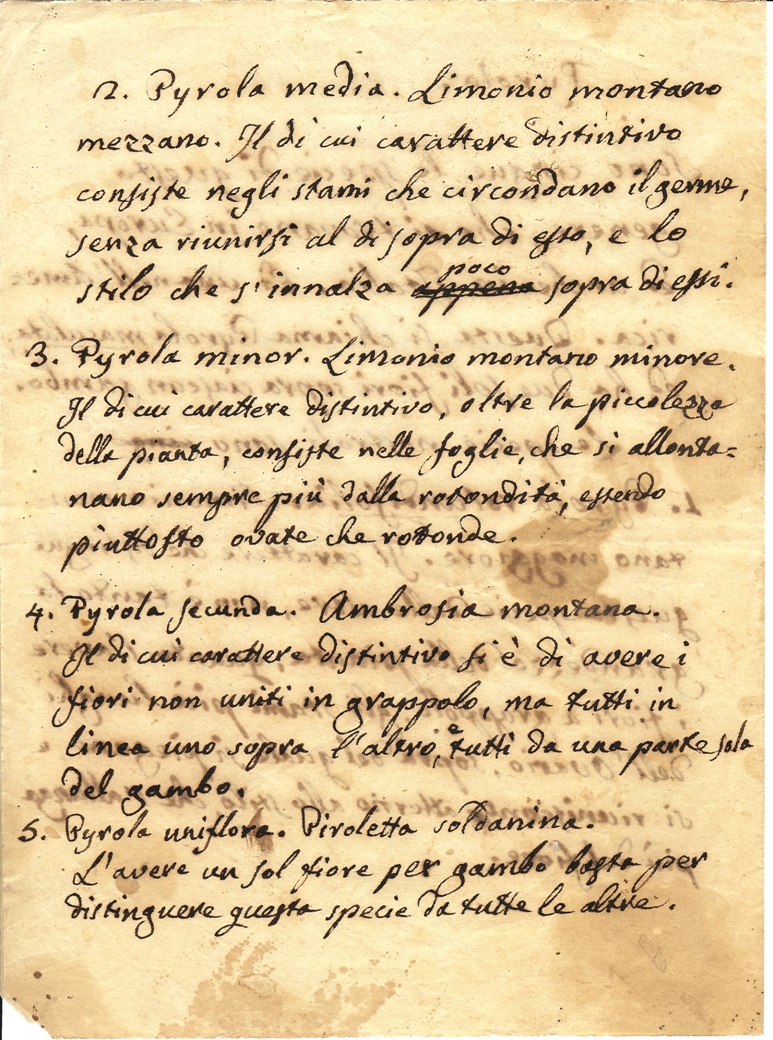 2. Pyrola media. Limonio montano
mezzano. Il di cui carattere distintivo
consiste negli stami che circondano il germe,
senza riunirsi al di sopra di esso, e lo
stilo che s'innalza appena poco sopra di essi.
3. Pyrola minor. Limonio montano minore.
Il di cui carattere distintivo, oltre la piccolezza
della pianta, consiste nelle foglie, che si allonta=
nano sempre più dalla rotondità, essendo
piuttosto ovate che rotonde.
4. Pyrola secunda. Ambrosia montana.
Il di cui carattere distintivo si è di avere i
fiori non uniti in grappolo, ma tutti in
linea uno sopra l'altro, e tutti da una parte sola
del gambo.
5. Pyrola uniflora. Piroletta soldanina.
L'avere un sol fiore per gambo basta per
distinguere questa specie da tutte le altre.